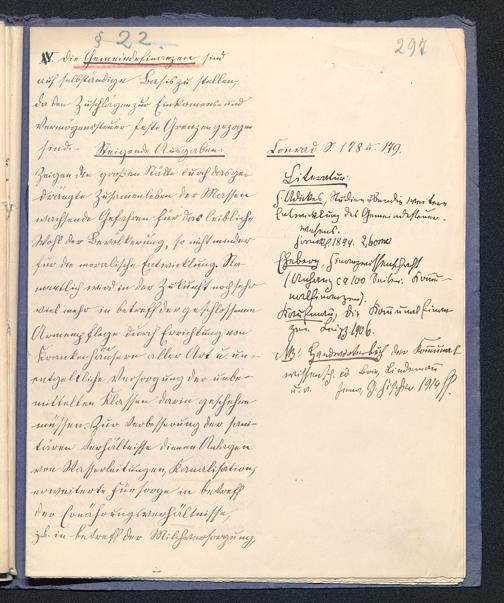 § 22.
297
IV. Die Gemeindefinanzen sind
auf selbständige Basis zu stellen,
da den Zuschlägen zur Einkommens- und
Vermögenssteuer feste Grenzen gezogen
sind. - Steigende Ausgaben:
Zeigen die großen Städte durch das ge-
drängte Zusammenleben der Massen
wachsende Gefahren für das leibliche
Wohl der Bevölkerung, so nicht minder
für die moralische Entwicklung. Na-
mentlich wird in der Zukunft noch sehr
viel mehr in betreff der geschlossenen
Armenpflege durch Errichtung von
Krankenhäusern aller Art u. un-
entgeltliche Versorgung der unbe-
mittelten Klassen darin geschehen
müssen. Zur Verbesserung der sani-
tären Verhältnisse dienen Anlagen
von Wasserleitungen, Kanalisation,
erweiterte Fürsorge in betreff
der Ernährungsverhältnisse,
z.B. in betreff der Milchversorgung,
Conrad S. 178 u. 179.
Literatur:
Adickes, Studien über die weitere
Entwicklung des Gemeindesteuer-
wesens.
1894.
Eheberg, Finanzwissenschaft
(Anhang ca 100 Seiten. Kom-
munalfinanzen).
Kaufmann, Die Kommunalfinan-
zen. Leipz 1906.
Handwörterbuch der Kommunal
wissensch. ed Brix, Lindemann
u.a. Jena, G. Fischer 1914 ff.